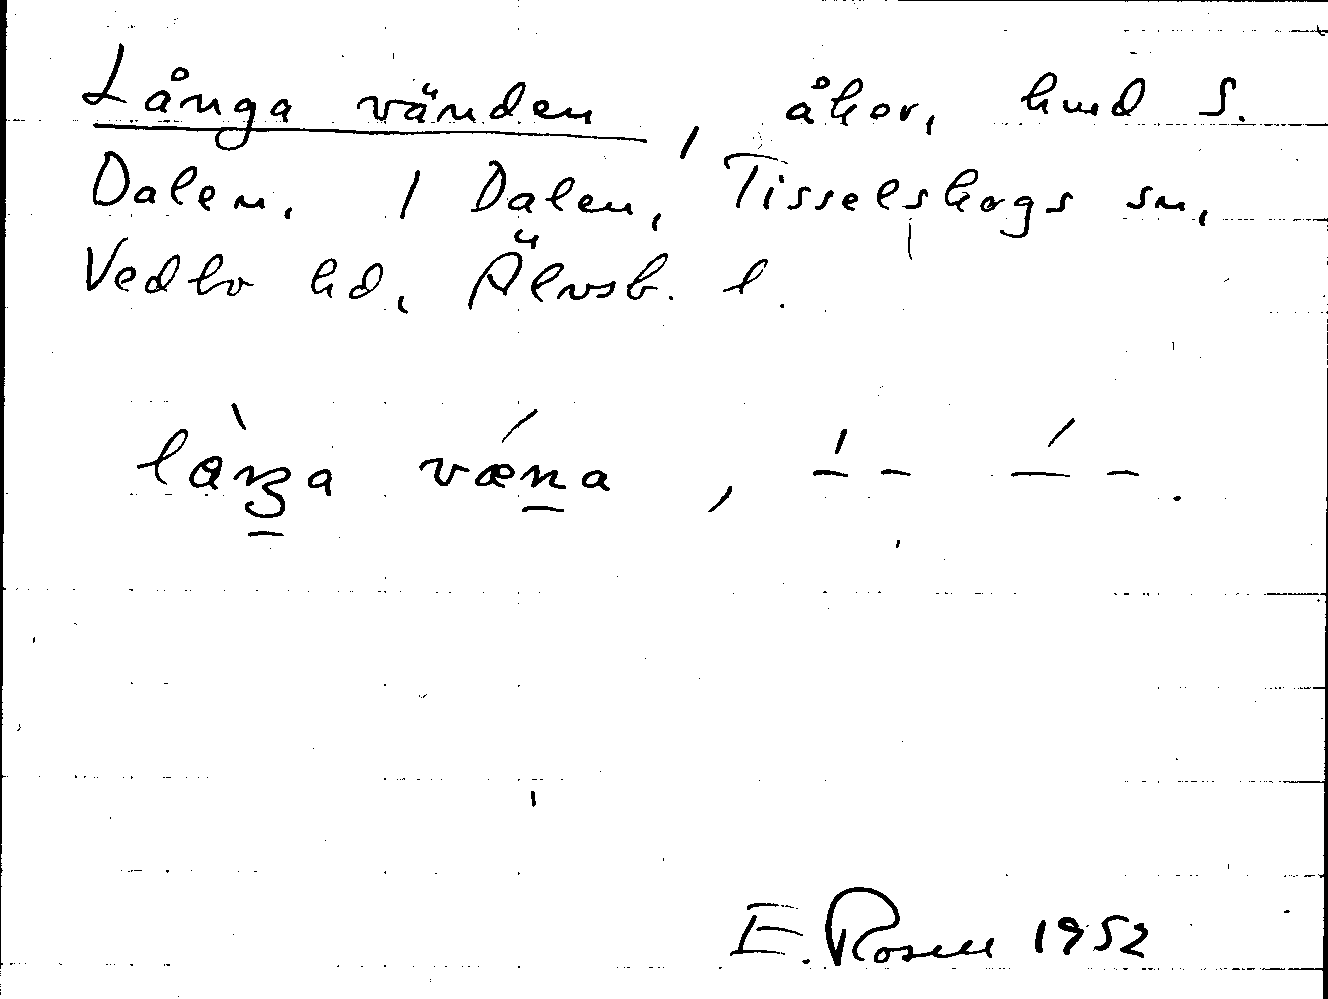 Långa vänden, åker, hmd S.
Dalen, 1 Dalen, Tisselskogs sn,
Vedbo hd, Älvsb. l.
làŋa vǽna, –́ – –́ –.
E. Rosell 1952